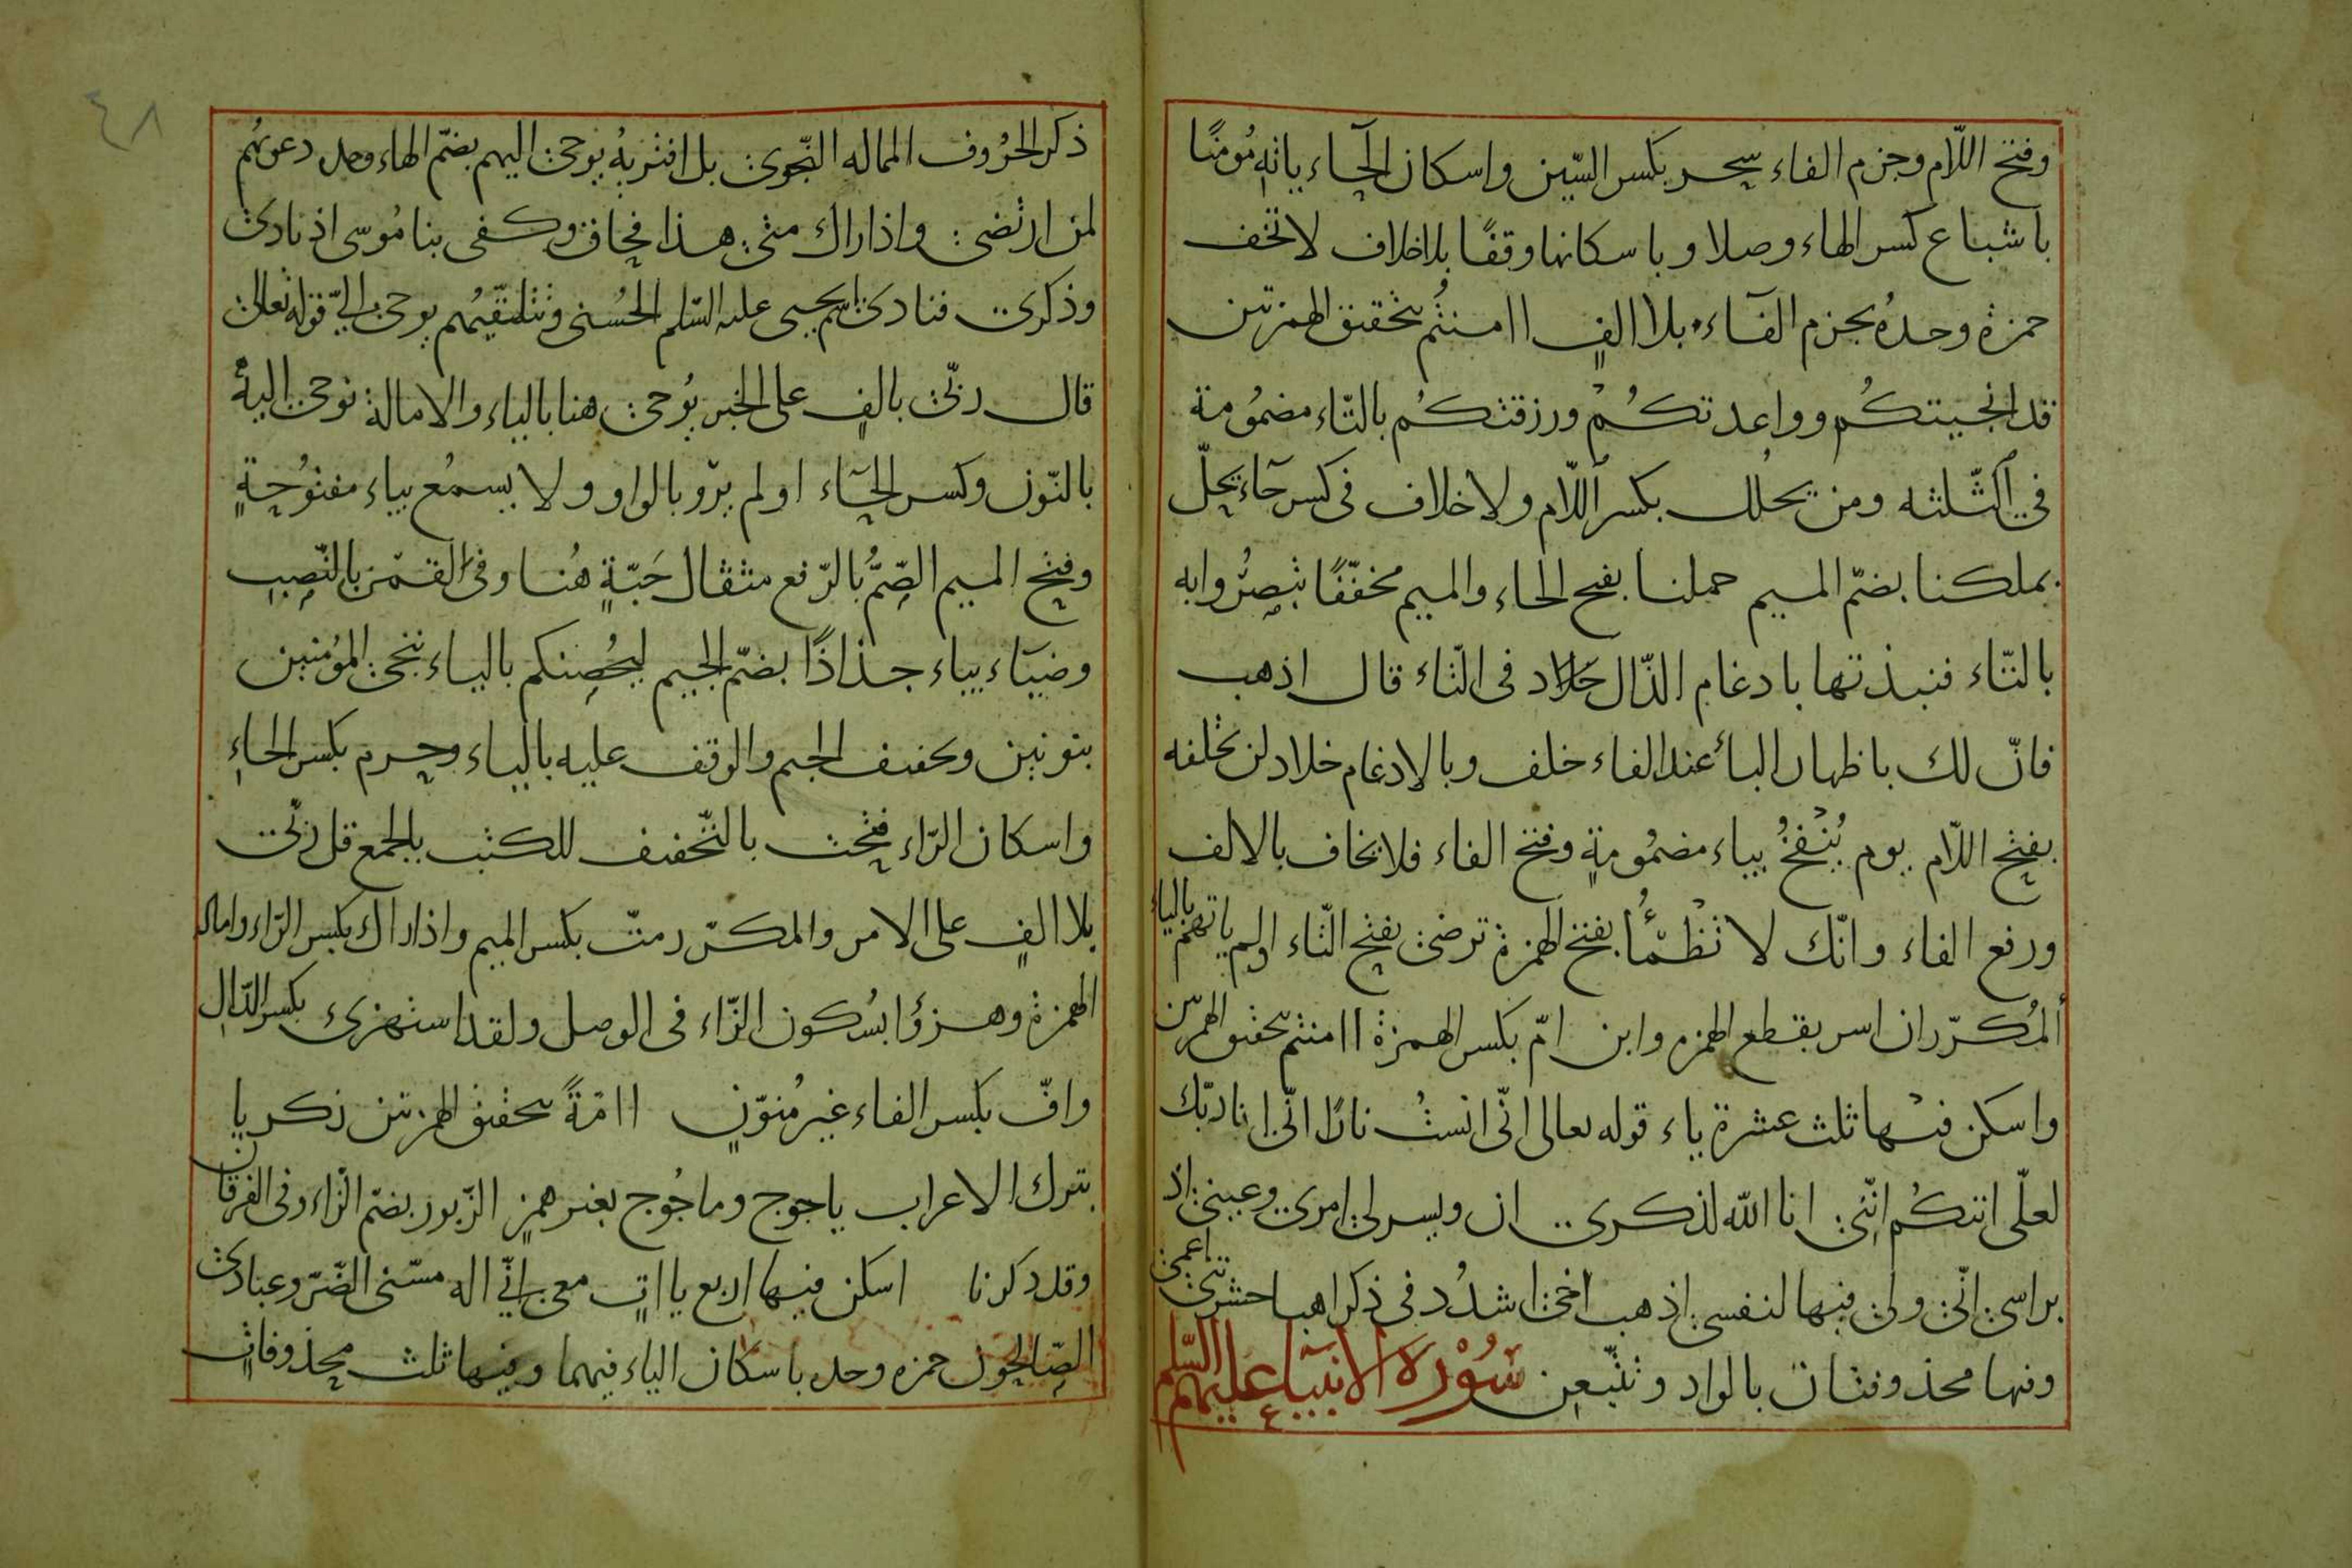 وفتح اللّام وجزم الفاء سحر بكسر السّين واسكان الحاء ياتهِ مُؤمنًا
باشباع كسر الهاء وصلا وباسكانها وقفًا بلا خلاف لا تخف
حمزة وحدهُ بجزم الفاء بلا الفٍ اامنتُم بتحقيق الهمزتين
قد انجيتكُم وواعدتكُمْ ورزقتكُم بالتّاء مضمُومة
في الثّلثه ومن يحلُل بكسر اللّام ولا خلاف في كسر حاء يحلّ
بملكنا بضمّ الميم حملنا بفتح الحاء والميم مخفّفًا تبصُروا به
بالتّاء فنبذتها بادغام الذّال خلاد في التّاء قال اذهب
فانّ لك باظهار الباء عند الفاء خلف وبالادغام خلاد لن تخلفه
بفتح اللّام يوم يُنْفخُ بياء مضمُومةٍ وفتح الفاء فلا يخاف بالالف
ورفع الفاء وانّك لا تظْمَؤُا بفتح الهمزة ترضى بفتح التّاء اولم ياتهم بالياء
المُكرّر ان اسر بقطع الهمزه وابن امّ بكسر الهمزة اامنتم بتحقيق الهمزتين
واسكن فيها ثلث عشرة ياء قوله تعالى انّى انستُ نارًا انّى انا ربّك
لعلّى اتتكُم انّنى انا الله لذكرى ان ويسر لى امرى وعينى اذ
براسى انّى ولى فيها لنفسى اذهب اخى اشدُد فى ذكر اذهبا حشرتنى اعمى
وفيها محذوفتان بالواد وتتّبعن سُوْرة الانبياء عليهم السّلم
٤٨
ذكر الحرُوف المماله النّجوى بل افتريهُ يوحى اليهم بضمّ الهاء وحده دعويهُم
لمن ارتضى واذا راك متى هذا فحاق وكفى بنا مُوسى اذ نادى
وذكرى فنادى اسم يحيى عليه السّلم الحُسنى وتتلقّيهُم يوحى الىّ قوله تعالى
قال ربّى بالفٍ على الخبر يُوحى هنا بالياء والامالة نوحى اليهُ
بالنّون وكسر الحاء اولم يرو بالواو ولا يسمعُ بياء مفتُوحةٍ
وفتح الميم الصّمُّ بالرّفع مثقال حَبّةٍ هُنا وفى لقمٰن بالنّصب
وضيآء بياء جذاذًا بضمّ الجيم ليحُصِنكم بالياء ننجى المؤمنين
بنونين وتخفيف الجيم والوقف عليه بالياء وحرم بكسر الحاءِ
واسكان الرّاء فتحت بالتّخفيف للكتب بالجمع قل ربّى
بلا الفٍ على الامر والمكرّر متّ بكسر الميم واذا راك بكسر الرّاء وامالة
الهمزة وهزؤًا بسُكون الزّاء فى الوصل ولقد استهزئ بكسر الدّال
وافّ بكسر الفاء غير مُنوّنٍ اامّةً بتحقيق الهمزتين زكريا
بترك الاعراب ياجوج وماجُوج بغير همزٍ الزّبور بضمّ الزّاء وفى الفرقان
وقد ذكرنا اسكن فيها اربع يااتٍ معى انّى اله مسّنى الضّرّ وعبادى
الصّالحُون حمزه وحده باسكان الياء فيهما وفيها ثلث محذوفاتٍ